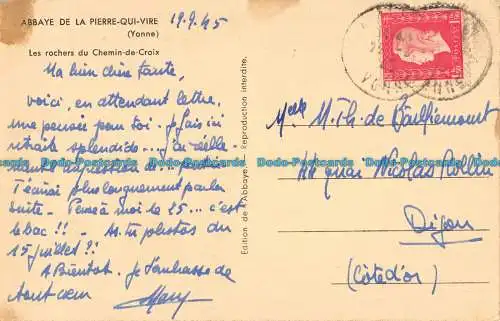 ABBAYE DE LA PIERRE-QUI-VIRE
(Yonne)
19.9.45
Les rochers du Chemin-de-Croix
Ma bien chère tante,
voici, en attendant lettre,
une pensée pour toi. Je fais ici
retraite splendide... J'ai réelle-
ment impression de
T'écrirai plus longuement par la
suite. Pense à moi le 25... c'est
le bac !! - As-tu photos du
15 juillet ?!
A Bientôt. Je t'embrasse de
tout cœur
Edition de l'Abbaye. Reproduction interdite.
Melle M. Th. de Bauffremont
44 quai Nicolas Rollin
Dijon
(Côte d'or)
Dodo-Postcards Dodo-Postcards Dodo-Postcards Dodo-Postcards